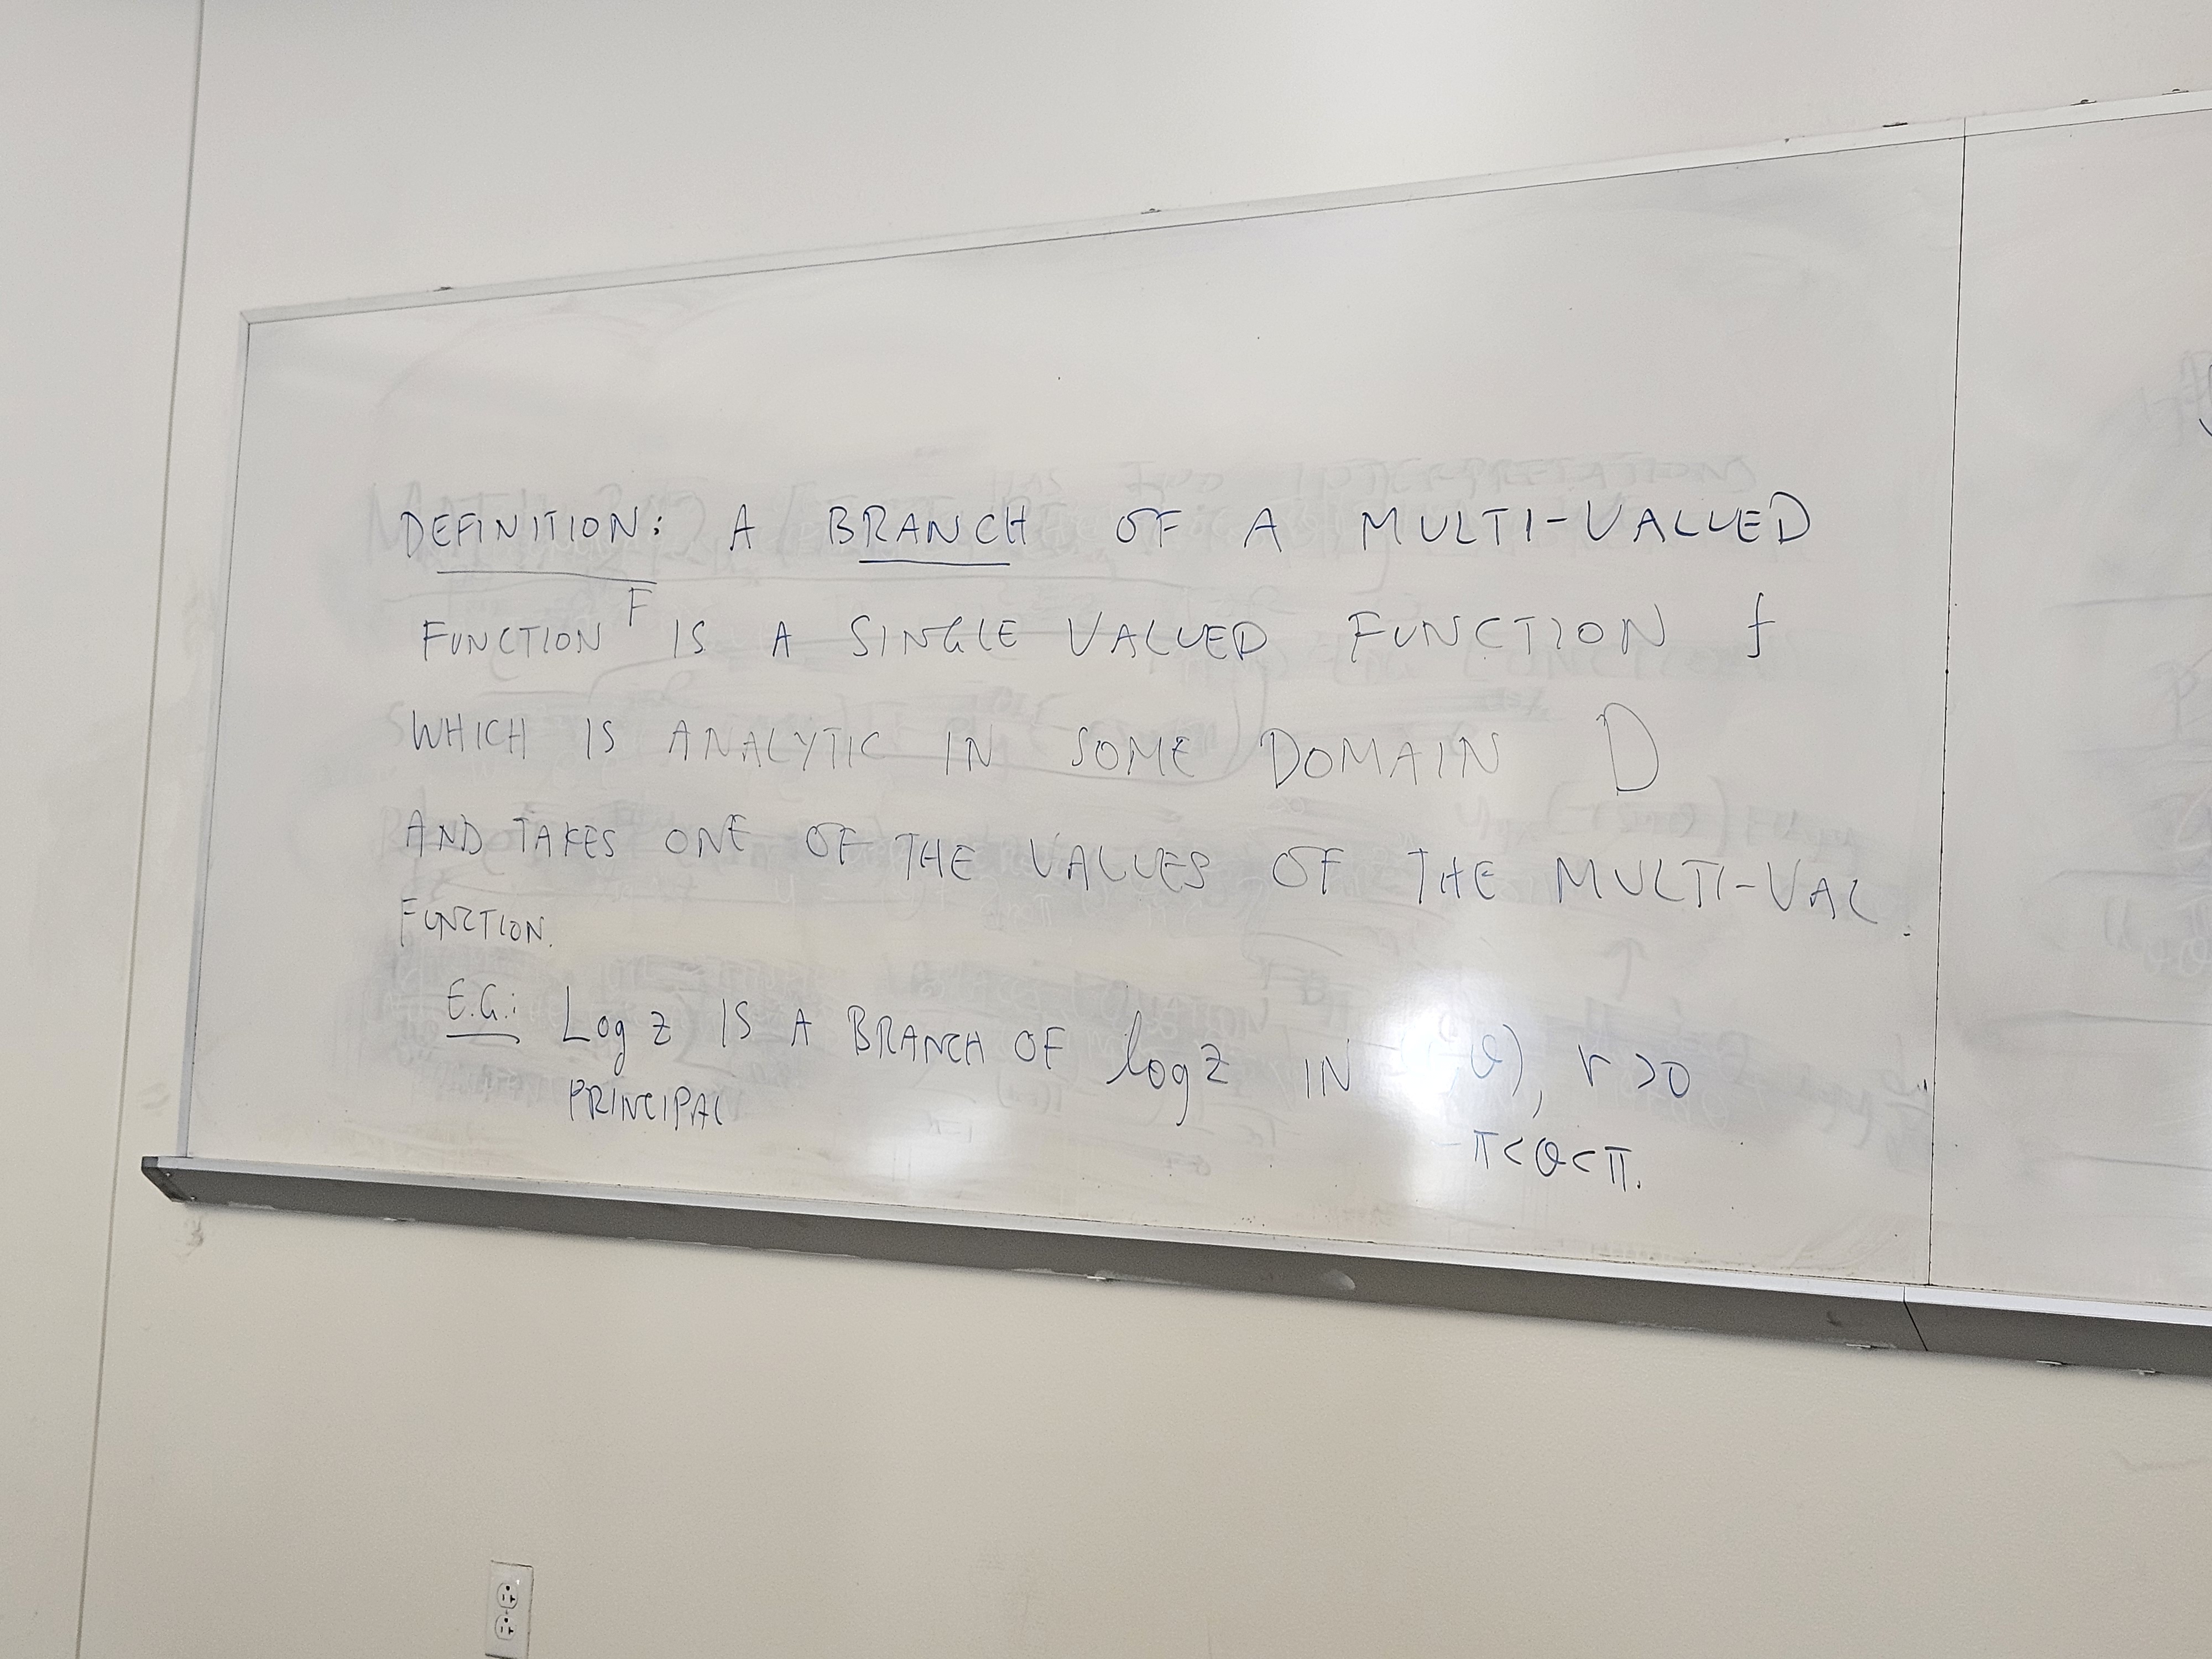 DEFINITION: A BRANCH OF A MULTI-VALUED
FUNCTION F IS A SINGLE VALUED FUNCTION f
WHICH IS ANALYTIC IN SOME DOMAIN D
AND TAKES ONE OF THE VALUES OF THE MULTI-VAL.
FUNCTION.
E.G.: Log z IS A BRANCH OF log z IN θ), r > 0
PRINCIPAL
-π < θ < π.